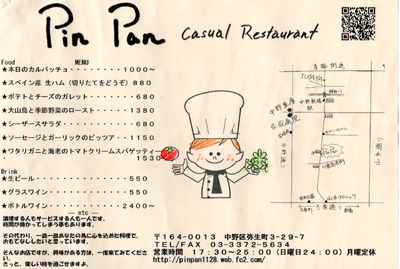 Pin Pan Casual Restaurant
Food MENU
★本日のカルパッチョ・・・・・・・・・1000～
★スペイン産 生ハム(切りたてをどうぞ)880
★ポテトとチーズのガレット・・・・・・・680
★大山鳥と季節野菜のロースト・・・・・1380
★シーザースサラダ・・・・・・・・・・・680
★ソーセージとガーリックのピッツァ・・1150
★ワタリガニと海老のトマトクリームスパゲッティ
1530
Drink
★生ビール・・・・・・・・・・・・・・・550
★グラスワイン・・・・・・・・・・・・・550
★ボトルワイン・・・・・・・・・・・2400～
― etc ―
調理する人もサービスする人も一人です。
時間が掛かってしまう事もあります。
その代わり、一皿一皿あなたの為に心を込めた料理で、
おもてなしたいと思っています。
そんなお店ですが、興味がある方は、一度来てみてください。
きっと、楽しい時を過ごせますよ。
〒164-0013 中野区弥生町3-29-7
TEL/FAX 03-3372-5634
営業時間 17:30～25:00(日曜日24:00)月曜定休
http://pinpan1128.web.fc2.com/